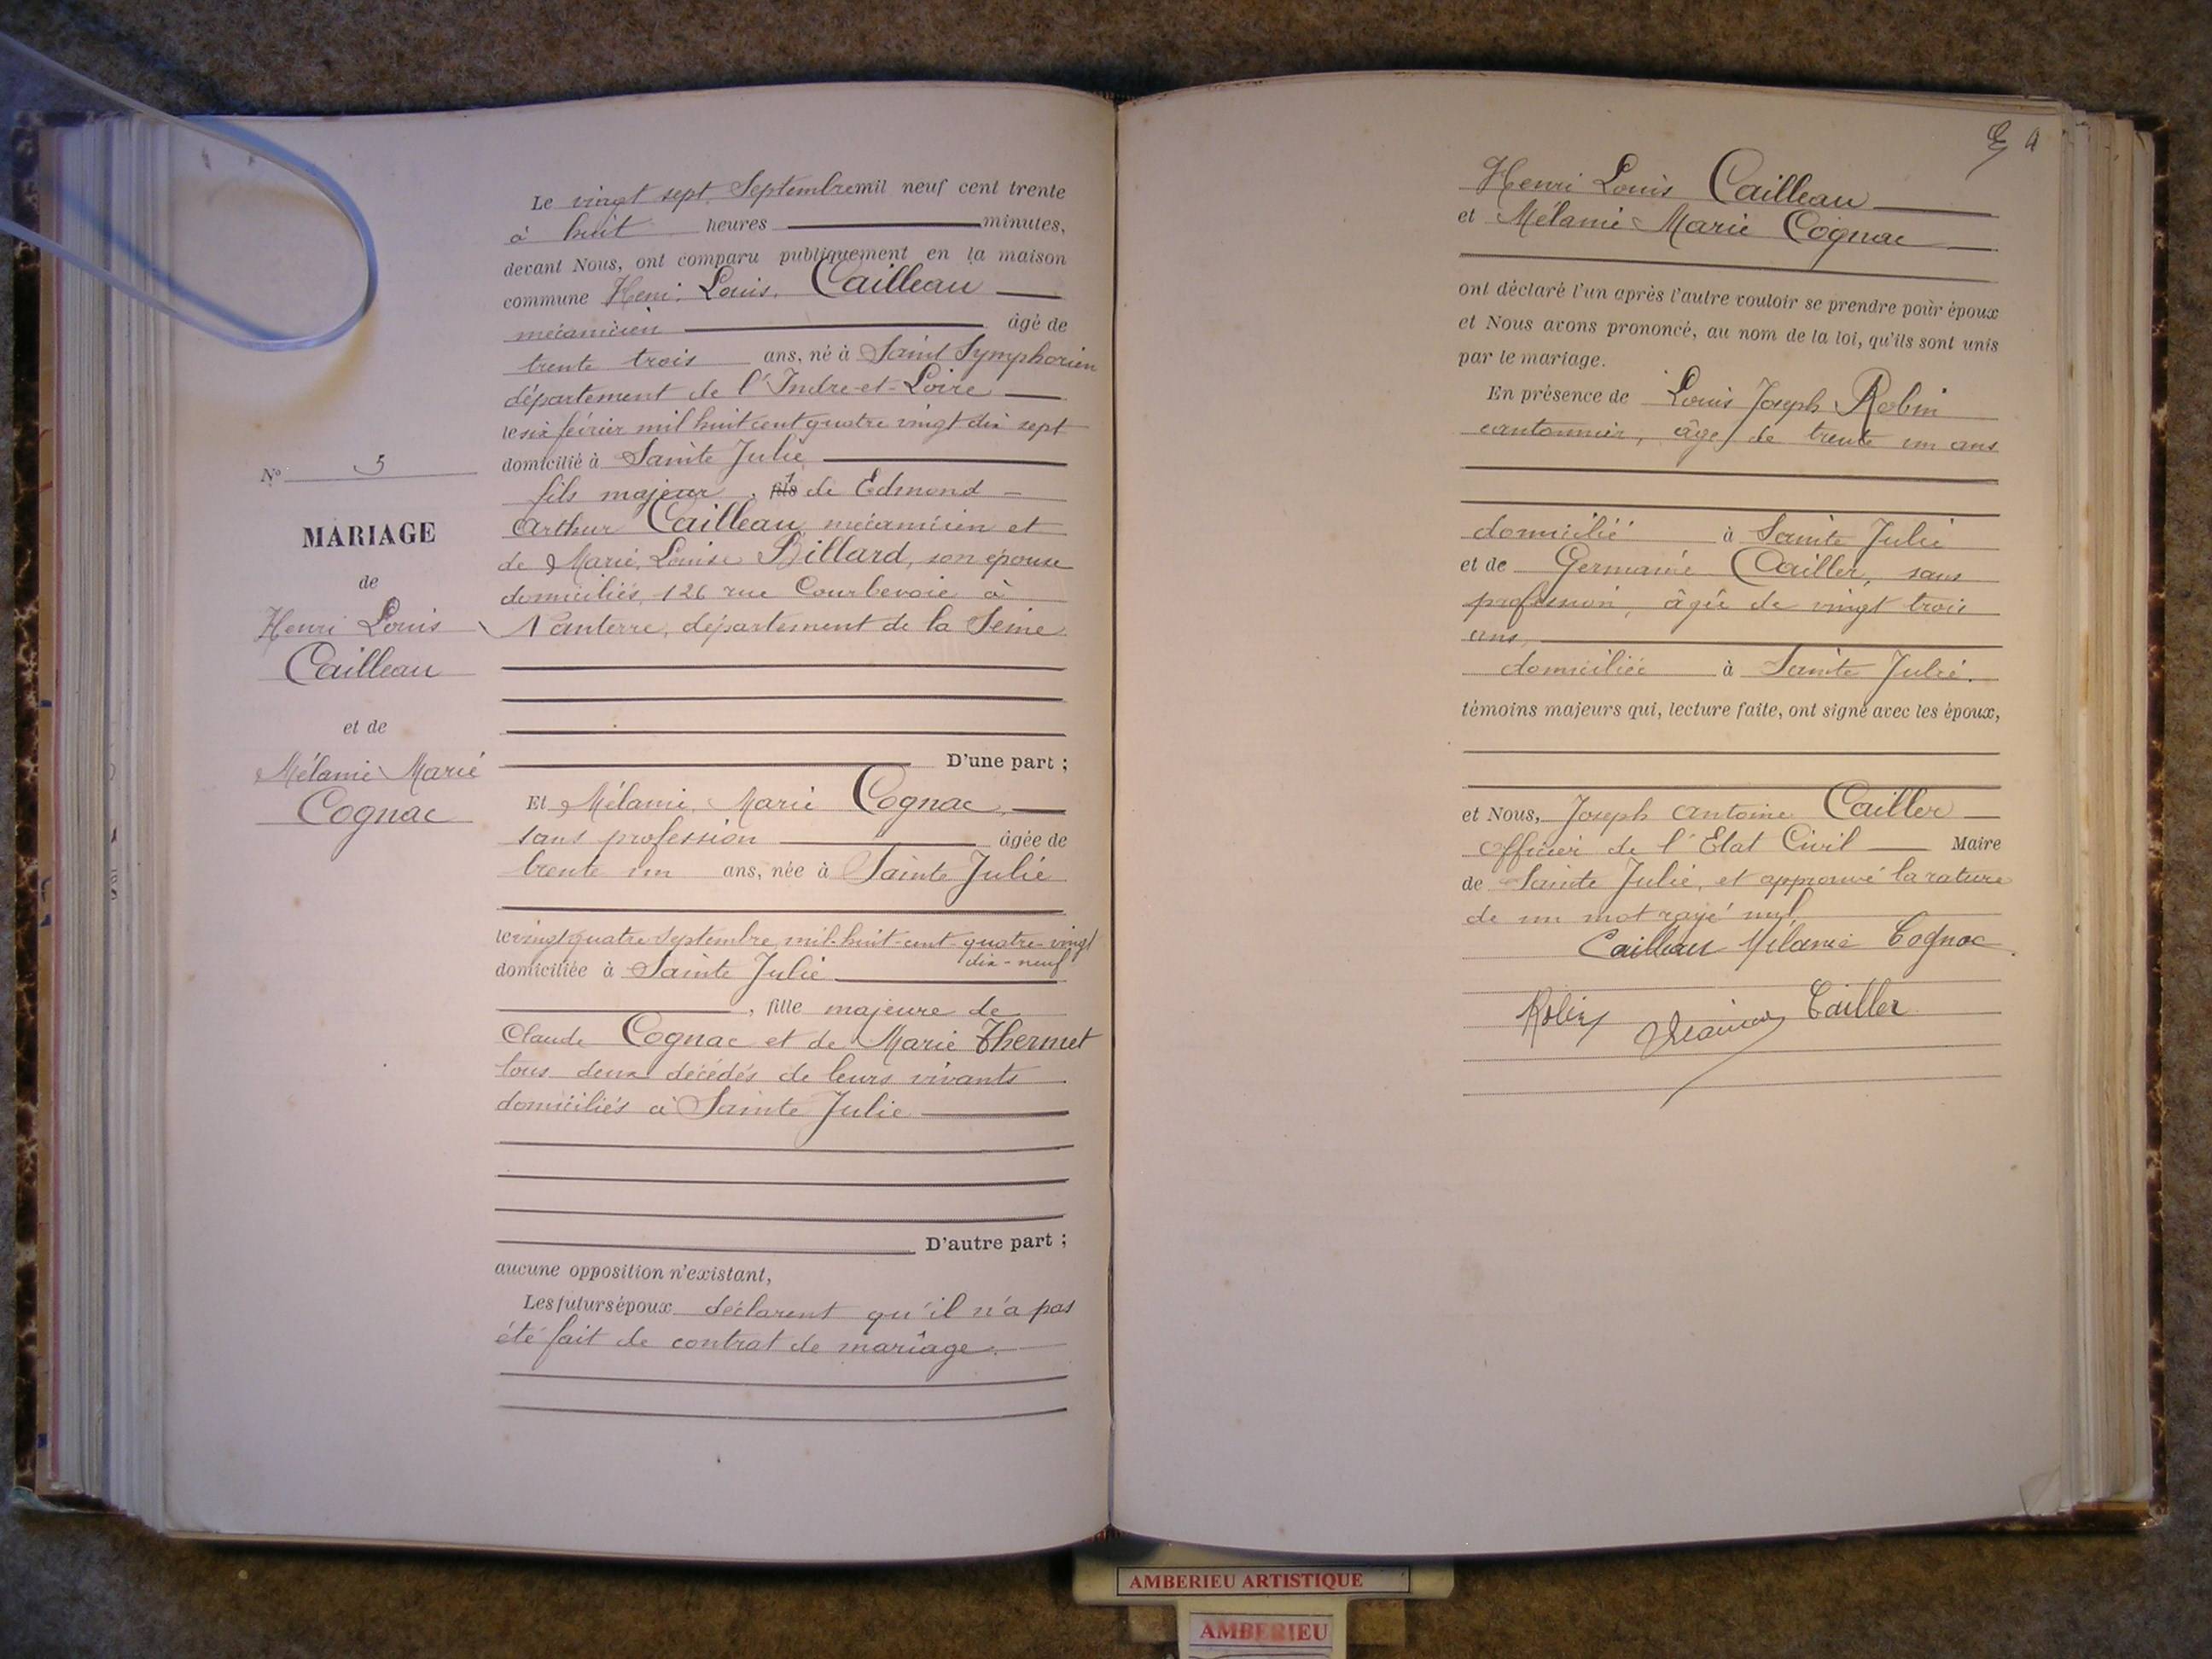 Le vingt sept Septembre mil neuf cent trente
à huit heures minutes,
devant Nous, ont comparu publiquement en la maison
commune Henri Louis Cailleau
mécanicien âgé de
trente trois ans, né à Saint Symphorien
département de l'Indre-et-Loire
le six février mil huit cent quatre vingt dix sept
domicilié à Sainte Julie
fils majeur, fils de Edmond
Arthur Cailleau, mécanicien et
de Marie Louise Billard, son épouse
domiciliés 126 rue Courbevoie à
Nanterre, département de la Seine
D'une part ;
Et Mélanie Marie Cognac,
sans profession âgée de
trente un ans, née à Sainte Julie
le vingt quatre septembre mil-huit-cent-quatre-vingt
dix-neuf
domiciliée à Sainte Julie
, fille majeure de
Claude Cognac et de Marie Thermet
tous deux décédés de leurs vivants
domiciliés à Sainte Julie
D'autre part ;
aucune opposition n'existant,
Les futurs époux déclarent qu'il n'a pas
été fait de contrat de mariage.
N° 5
MARIAGE
de
Henri Louis
Cailleau
et de
Mélanie Marie
Cognac
Henri Louis Cailleau
et Mélanie Marie Cognac
ont déclaré l'un après l'autre vouloir se prendre pour époux
et Nous avons prononcé, au nom de la loi, qu'ils sont unis
par le mariage.
En présence de Louis Joseph Robin
cantonnier, âgé de trente un ans
domicilié à Sainte Julie
et de Germaine Cailler, sans
profession, âgée de vingt trois
ans,
domiciliée à Sainte Julie.
témoins majeurs qui, lecture faite, ont signé avec les époux,
et Nous, Joseph Antoine Cailler
Officier de l'Etat Civil Maire
de Sainte Julie, et approuvé la rature
de un mot rayé nul.
Cailleau Mélanie Cognac
Robin Cailler
AMBERIEU ARTISTIQUE
AMBERIEU